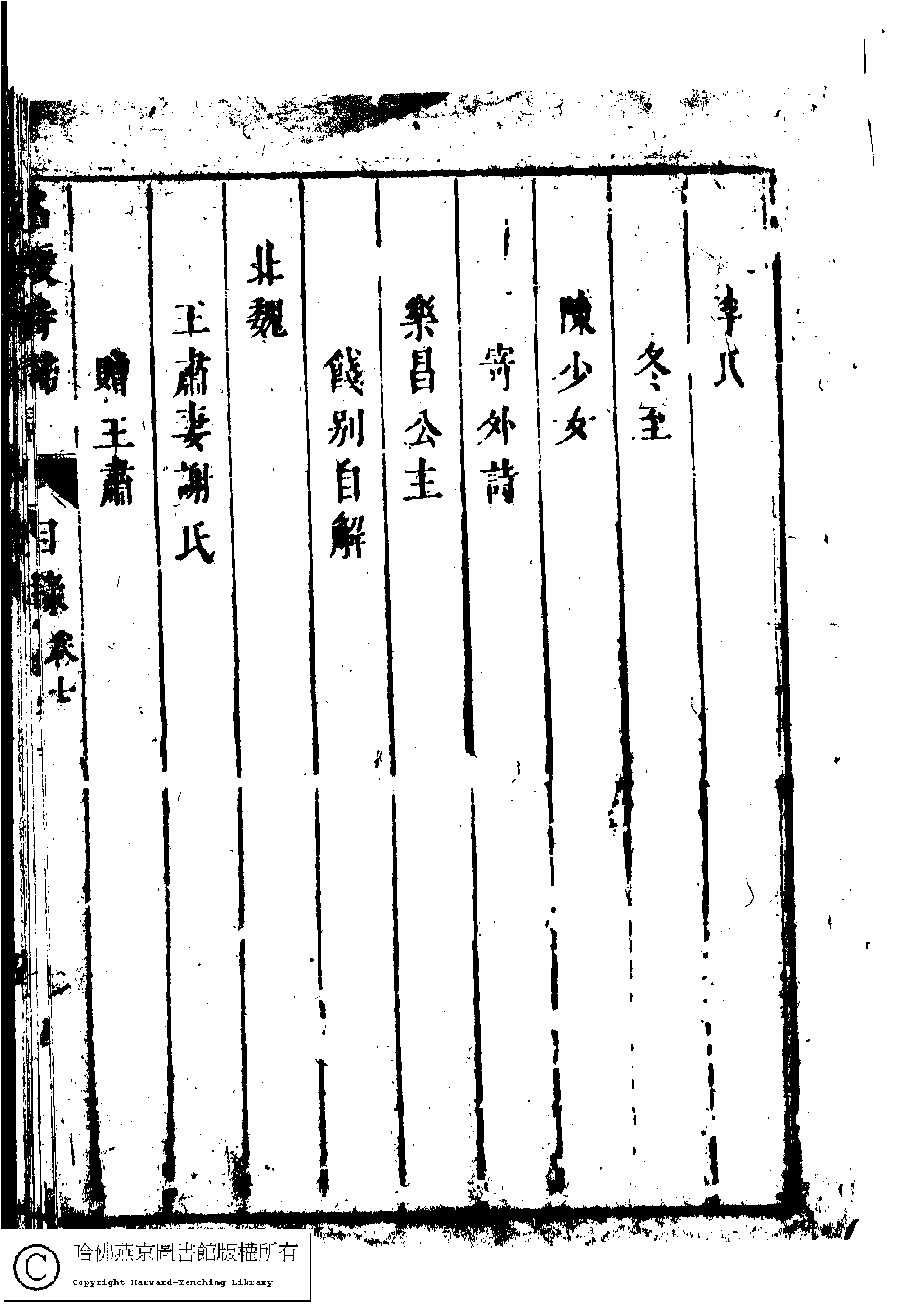 李氏
冬至
陳少女
寄外詩
樂昌公主
餞別自解
北魏
王肅妻謝氏
贈王肅
名媛詩歸
目錄
卷七
哈佛燕京圖書館版權所有
Copyright Harvard-Yenching Library